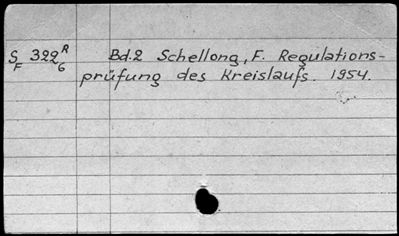 S_F 322^R_6 Bd.2 Schellong, F. Regulations-
prüfung des Kreislaufs. 1954.